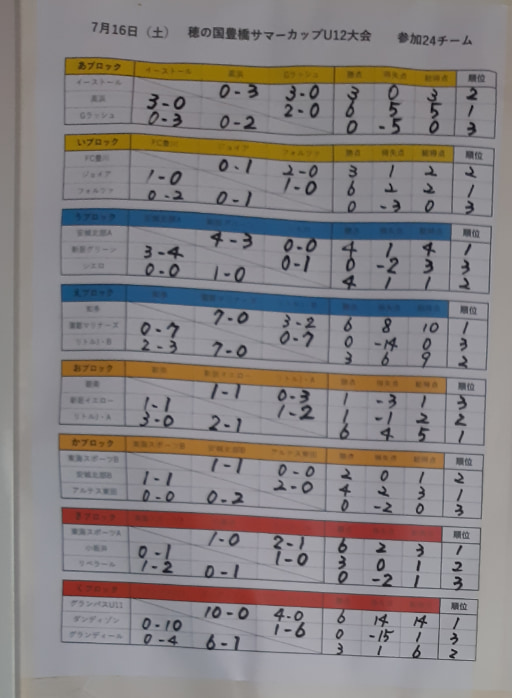 7月16日（土） 穂の国豊橋サマーカップU12大会 参加24チーム
あブロック イーストール 高浜 Gラッシュ 勝点 得失点 総得点 順位
イーストール 0-3 3-0 3 0 3 2
高浜 3-0 2-0 6 5 5 1
Gラッシュ 0-3 0-2 0 -5 0 3
いブロック FC豊川 ジョイア フォルツァ 勝点 得失点 総得点 順位
FC豊川 0-1 2-0 3 1 2 2
ジョイア 1-0 1-0 6 2 2 1
フォルツァ 0-2 0-1 0 -3 0 3
うブロック 安城北部A 順位
安城北部A 4-3 0-0 4 1 4 1
新居グリーン 3-4 0-1 0 -2 3 3
シエロ 0-0 1-0 4 1 1 2
えブロック 順位
7-0 3-2 6 8 10 1
0-7 0-7 0 -14 0 3
リトルJ・B 2-3 7-0 3 6 9 2
おブロック 新居イエロー リトルJ・A 勝点 得失点 総得点 順位
1-1 0-3 1 -3 1 3
新居イエロー 1-1 1-2 1 -1 2 2
リトルJ・A 3-0 2-1 6 4 5 1
かブロック 東海スポーツB 安城北部B アルテス東田 勝点 得失点 総得点 順位
東海スポーツB 1-1 0-0 2 0 1 2
安城北部B 1-1 2-0 4 2 3 1
アルテス東田 0-0 0-2 0 -2 0 3
きブロック 順位
東海スポーツA 1-0 2-1 6 2 3 1
小坂井 0-1 1-0 3 0 1 2
リベラール 1-2 0-1 0 -2 1 3
くブロック 順位
グランパスU11 10-0 4-0 6 14 14 1
ダンディゾン 0-10 1-6 0 -15 1 3
グランディール 0-4 6-1 3 1 6 2